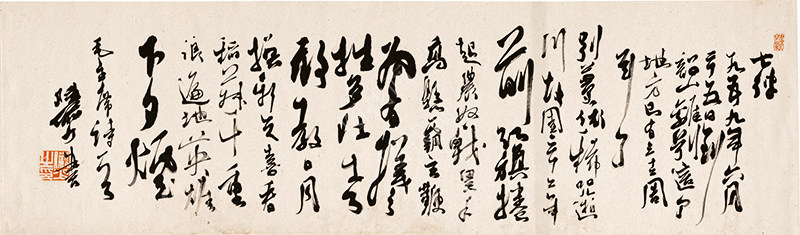 七律
一九五九年六月
二十五日到
韶山離別這个
地方已有三十二周
年了
別夢依稀咒逝
川故園三十二年
前紅旗捲
起農奴戟黑手
高懸霸主鞭
為有犧
牲多壯志
敢教日月
換新天喜看
稻菽千重
浪遍地英雄
下夕煙
毛主席詩一首